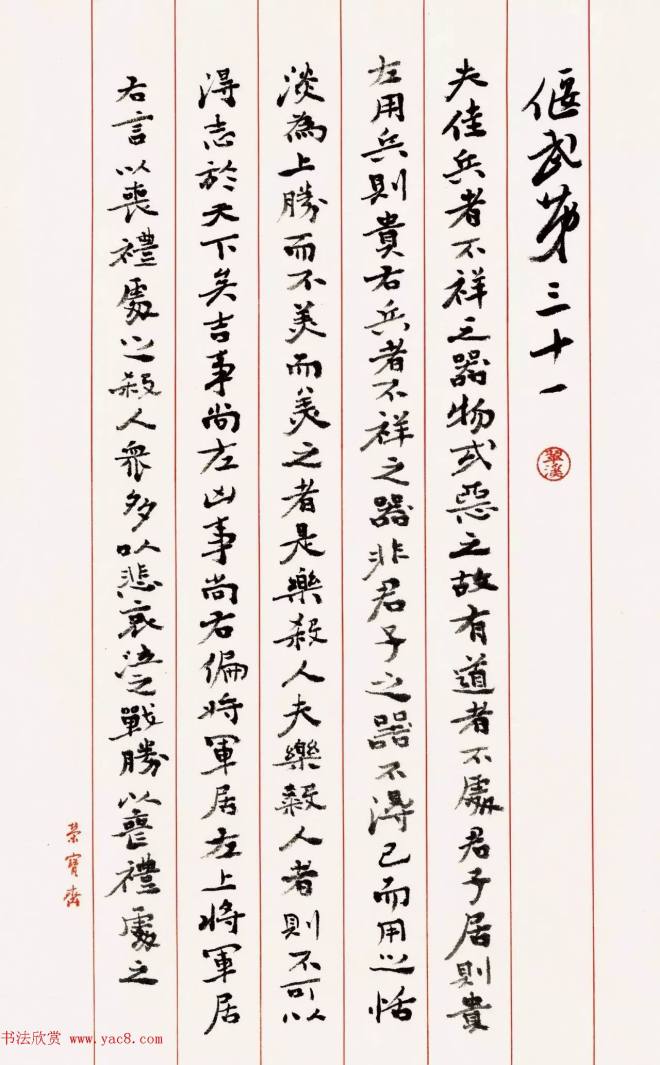 偃武第三十一
翠溪
夫佳兵者不祥之器物或惡之故有道者不處君子居則貴
左用兵則貴右兵者不祥之器非君子之器不得已而用之恬
淡為上勝而不美而美之者是樂殺人夫樂殺人者則不可以
得志於天下矣吉事尚左凶事尚右偏將軍居左上將軍居
右言以喪禮處之殺人衆多以悲哀泣之戰勝以喪禮處之
榮寶齋
书法欣赏 www.yac8.com